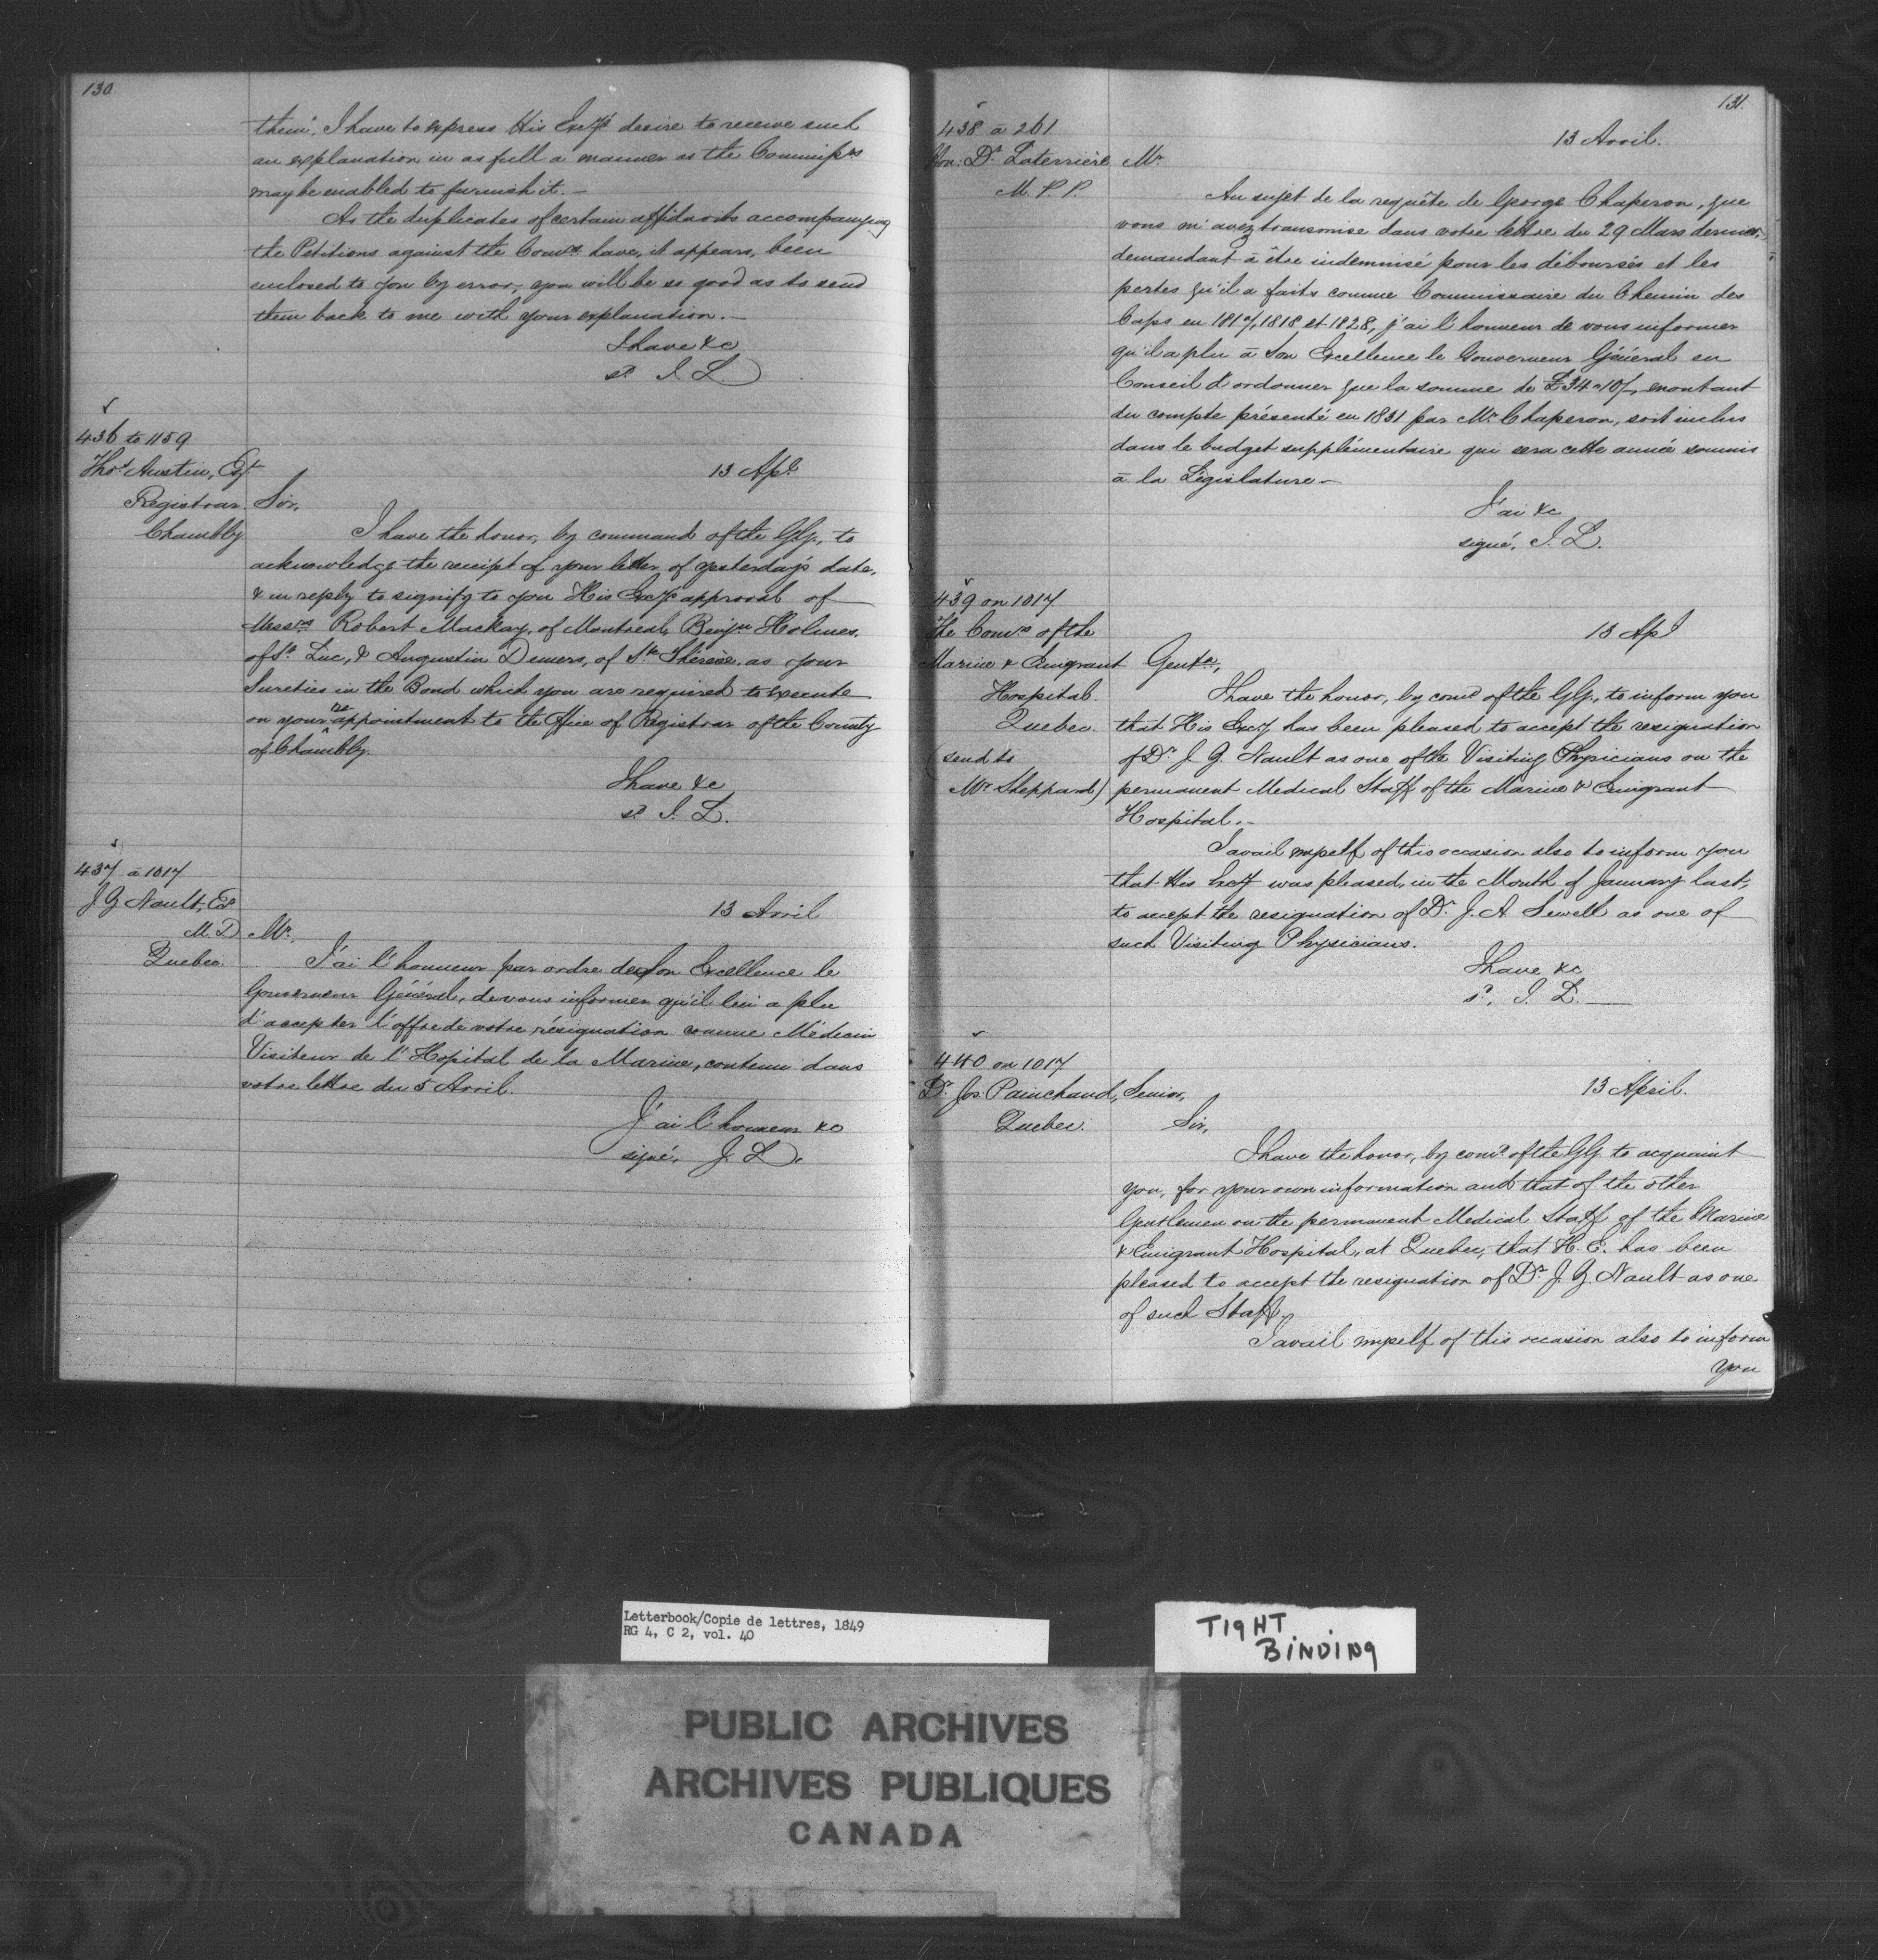 130
them", I have to express His Excy's desire to receive such
an explanation in as full a manner as the Commissrs
may be enabled to furnish it.—
As the duplicates of certain affidavits accompanying
the Petitions against the Comrs. have, it appears, been
enclosed to you by error, you will be so good as to send
them back to me with your explanation.—
I have &c
sd. J. L.
436 to 1159
Thos Austin, Esq
Registrar
Chambly
13 Apl.
Sir,
I have the honor, by command of the G.G., to
acknowledge the receipt of your letter of yesterday's date,
& in reply to signify to you His Excy's approval of
Messrs Robert Mackay, of Montreal, Benjn Holmes,
of St. Luc, & Augustin Demers, of Ste Thérèse, as your
Sureties in the Bond which you are required to execute
on your re appointment to the Office of Registrar of the County
of Chambly.
I have &c
sd. J. L.
437 à 1017
J G Nault, Er
M. D
Quebec.
13 Avril
Mr,
J'ai l'honneur par ordre de Son Excellence le
Gouverneur Général, de vous informer qu'il lui a plu
d'accepter l'offre de votre résignation comme Médecin
Visiteur de l'Hopital de la Marine, contenu dans
votre lettre du 5 Avril.
J'ai l'honneur &c
signé, J. L.
131.
438 à 261
Hon. Dr. Laterrière
M. P. P.
13 Avril.
Mr.
Au sujet de la requête de George Chaperon, que
vous m'avez transmise dans votre lettre du 29 Mars dernier,
demandant à être indemnisé pour les déboursés et les
pertes qu'il a faits comme Commissaire du Chemin des
Caps en 1817, 1818 et 1828, j'ai l'honneur de vous informer
qu'il a plu à Son Excellence le Gouverneur Général en
Conseil d'ordonner que la somme de £34"10/-, montant
du compte présenté en 1831 par Mr. Chaperon, soit inclus
dans le budget supplémentaire qui sera cette année soumis
à la Législature—
J'ai &c
signé, J. L.
439 on 1017
The Comrs of the
Marine & Emigrant
Hospital.
Quebec.
(send to
Mr Sheppard)
13 Apl
Gentn,
I have the honor, by comd of the G.G., to inform you
that His Excy has been pleased to accept the resignation
of Dr. J. G. Nault as one of the Visiting Physicians on the
permanent Medical Staff of the Marine & Emigrant
Hospital.—
I avail myself of this occasion also to inform you
that His Excy was pleased, in the Month of January last,
to accept the resignation of Dr. J. A. Sewell as one of
such Visiting Physicians.
I have &c
sd. J. L.—
440 on 1017
Dr. Jos. Painchaud, Senior,
Quebec.
13 April.
Sir,
I have the honor, by comd. of the G.G. to acquaint
you, for your own information and that of the other
Gentlemen on the permanent Medical Staff of the Marine
& Emigrant Hospital, at Quebec, that H. E. has been
pleased to accept the resignation of Dr. J. G. Nault as one
of such Staff.
I avail myself of this occasion also to inform
you
Letterbook/Copie de lettres, 1849
RG 4, C 2, vol. 40
TIGHT
BINDING
PUBLIC ARCHIVES
ARCHIVES PUBLIQUES
CANADA